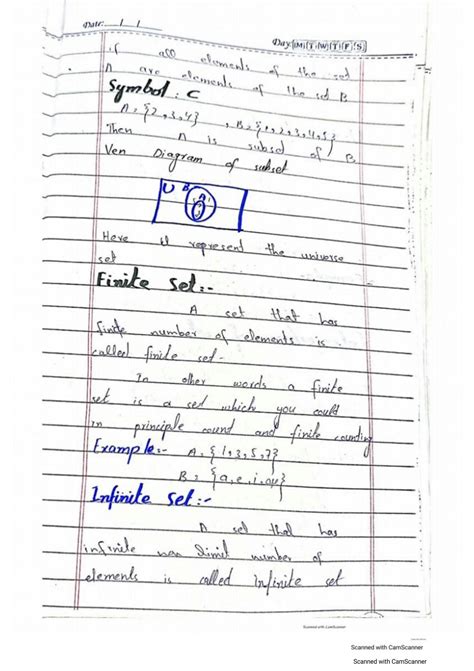 Date: / /
Day: M T W T F S
if all elements of the set
A are elements of the set B
Symbol : C
A = {2,3,4} , B = {1,2,3,4,5}
Then A is subset of B
Ven Diagram of subset
U B A
Here U represent the universe
set
Finite Set:-
A set that has
finite number of elements is
called finite set-
In other words a finite
set is a set which you could
in principle count and finite counting
Example:- A = {1,3,5,7}
B = {a,e,i,o,u}
Infinite Set:-
A set that has
infinite non limit number of
elements is called Infinite set
Scanned with CamScanner
Scanned with CamScanner
Scanned with CamScanner